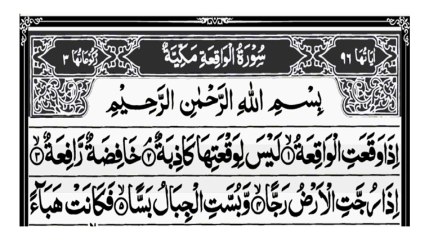 اٰيَاتُهَا ٩٦ سُوْرَةُ الْوَاقِعَةِ مَكِّيَّةٌ رُكُوْعَاتُهَا ٣
بِسْمِ اللّٰهِ الرَّحْمٰنِ الرَّحِيْمِ
اِذَا وَقَعَتِ الْوَاقِعَةُ ۙ﴿۱﴾ لَيْسَ لِوَقْعَتِهَا كَاذِبَةٌ ۘ﴿۲﴾ خَافِضَةٌ رَّافِعَةٌ ۙ﴿۳﴾
اِذَا رُجَّتِ الْاَرْضُ رَجًّا ۙ﴿۴﴾ وَّبُسَّتِ الْجِبَالُ بَسًّا ۙ﴿۵﴾ فَكَانَتْ هَبَآءً